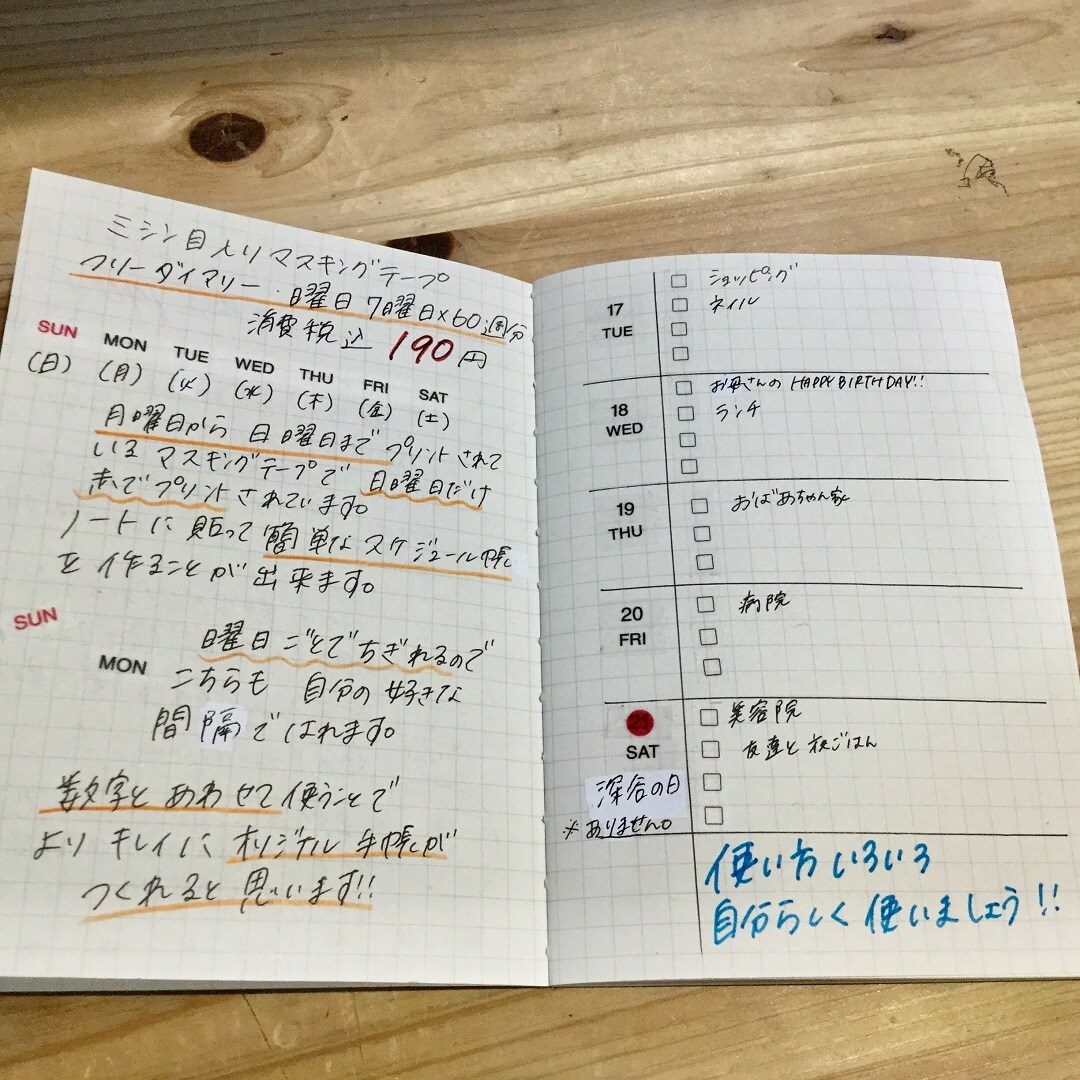 ミシン目入りマスキングテープ
フリーダイアリー・曜日 7曜日×60週分
消費税込 190円
SUN MON TUE WED THU FRI SAT
(日) (月) (火) (水) (木) (金) (土)
月曜日から日曜日までプリントされて
いるマスキングテープで日曜日だけ
赤でプリントされています。
ノートに貼って簡単なスケジュール帳
を作ることが出来ます。
SUN
MON
曜日ごとでちぎれるので
こちらも 自分の好きな
間隔ではれます。
数字とあわせて使うことで
よりキレイにオリジナル手帳が
つくれると思います!!
17
TUE
ショッピング
ネイル
18
WED
お母さんの HAPPY BIRTHDAY!!
ランチ
19
THU
おばあちゃん家
20
FRI
病院
21
SAT
美容院
友達と夜ごはん
の日
※ありません。
使い方いろいろ
自分らしく使いましょう!!